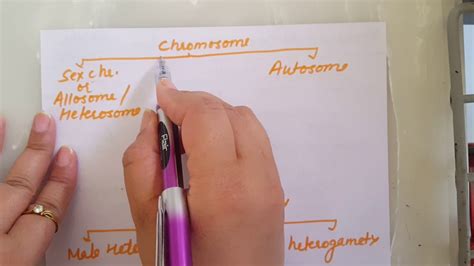 Chromosome
Sex ch.
or
Allosome /
Heterosome
Autosome
Pair
Male Hete
heterogamety